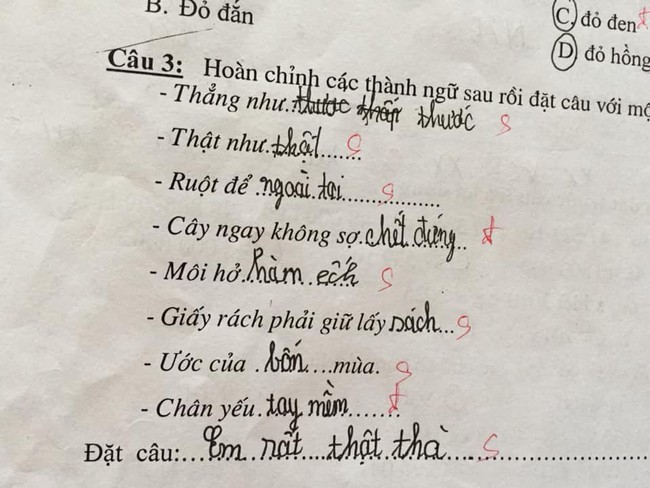 B. Đỏ đắn
C đỏ đen đ
D đỏ hồng
Câu 3: Hoàn chỉnh các thành ngữ sau rồi đặt câu với mộ
- Thẳng như..thước thấp thước s
- Thật như.thật....... s
- Ruột để ngoài tai................ s
- Cây ngay không sợ.chết đứng.. đ
- Môi hở.hàm.ếch s
- Giấy rách phải giữ lấy sách... s
- Ước của .bốn....mùa. s
- Chân yếu.tay mềm....... đ
Đặt câu:...Em..rất....thật..thà.... s